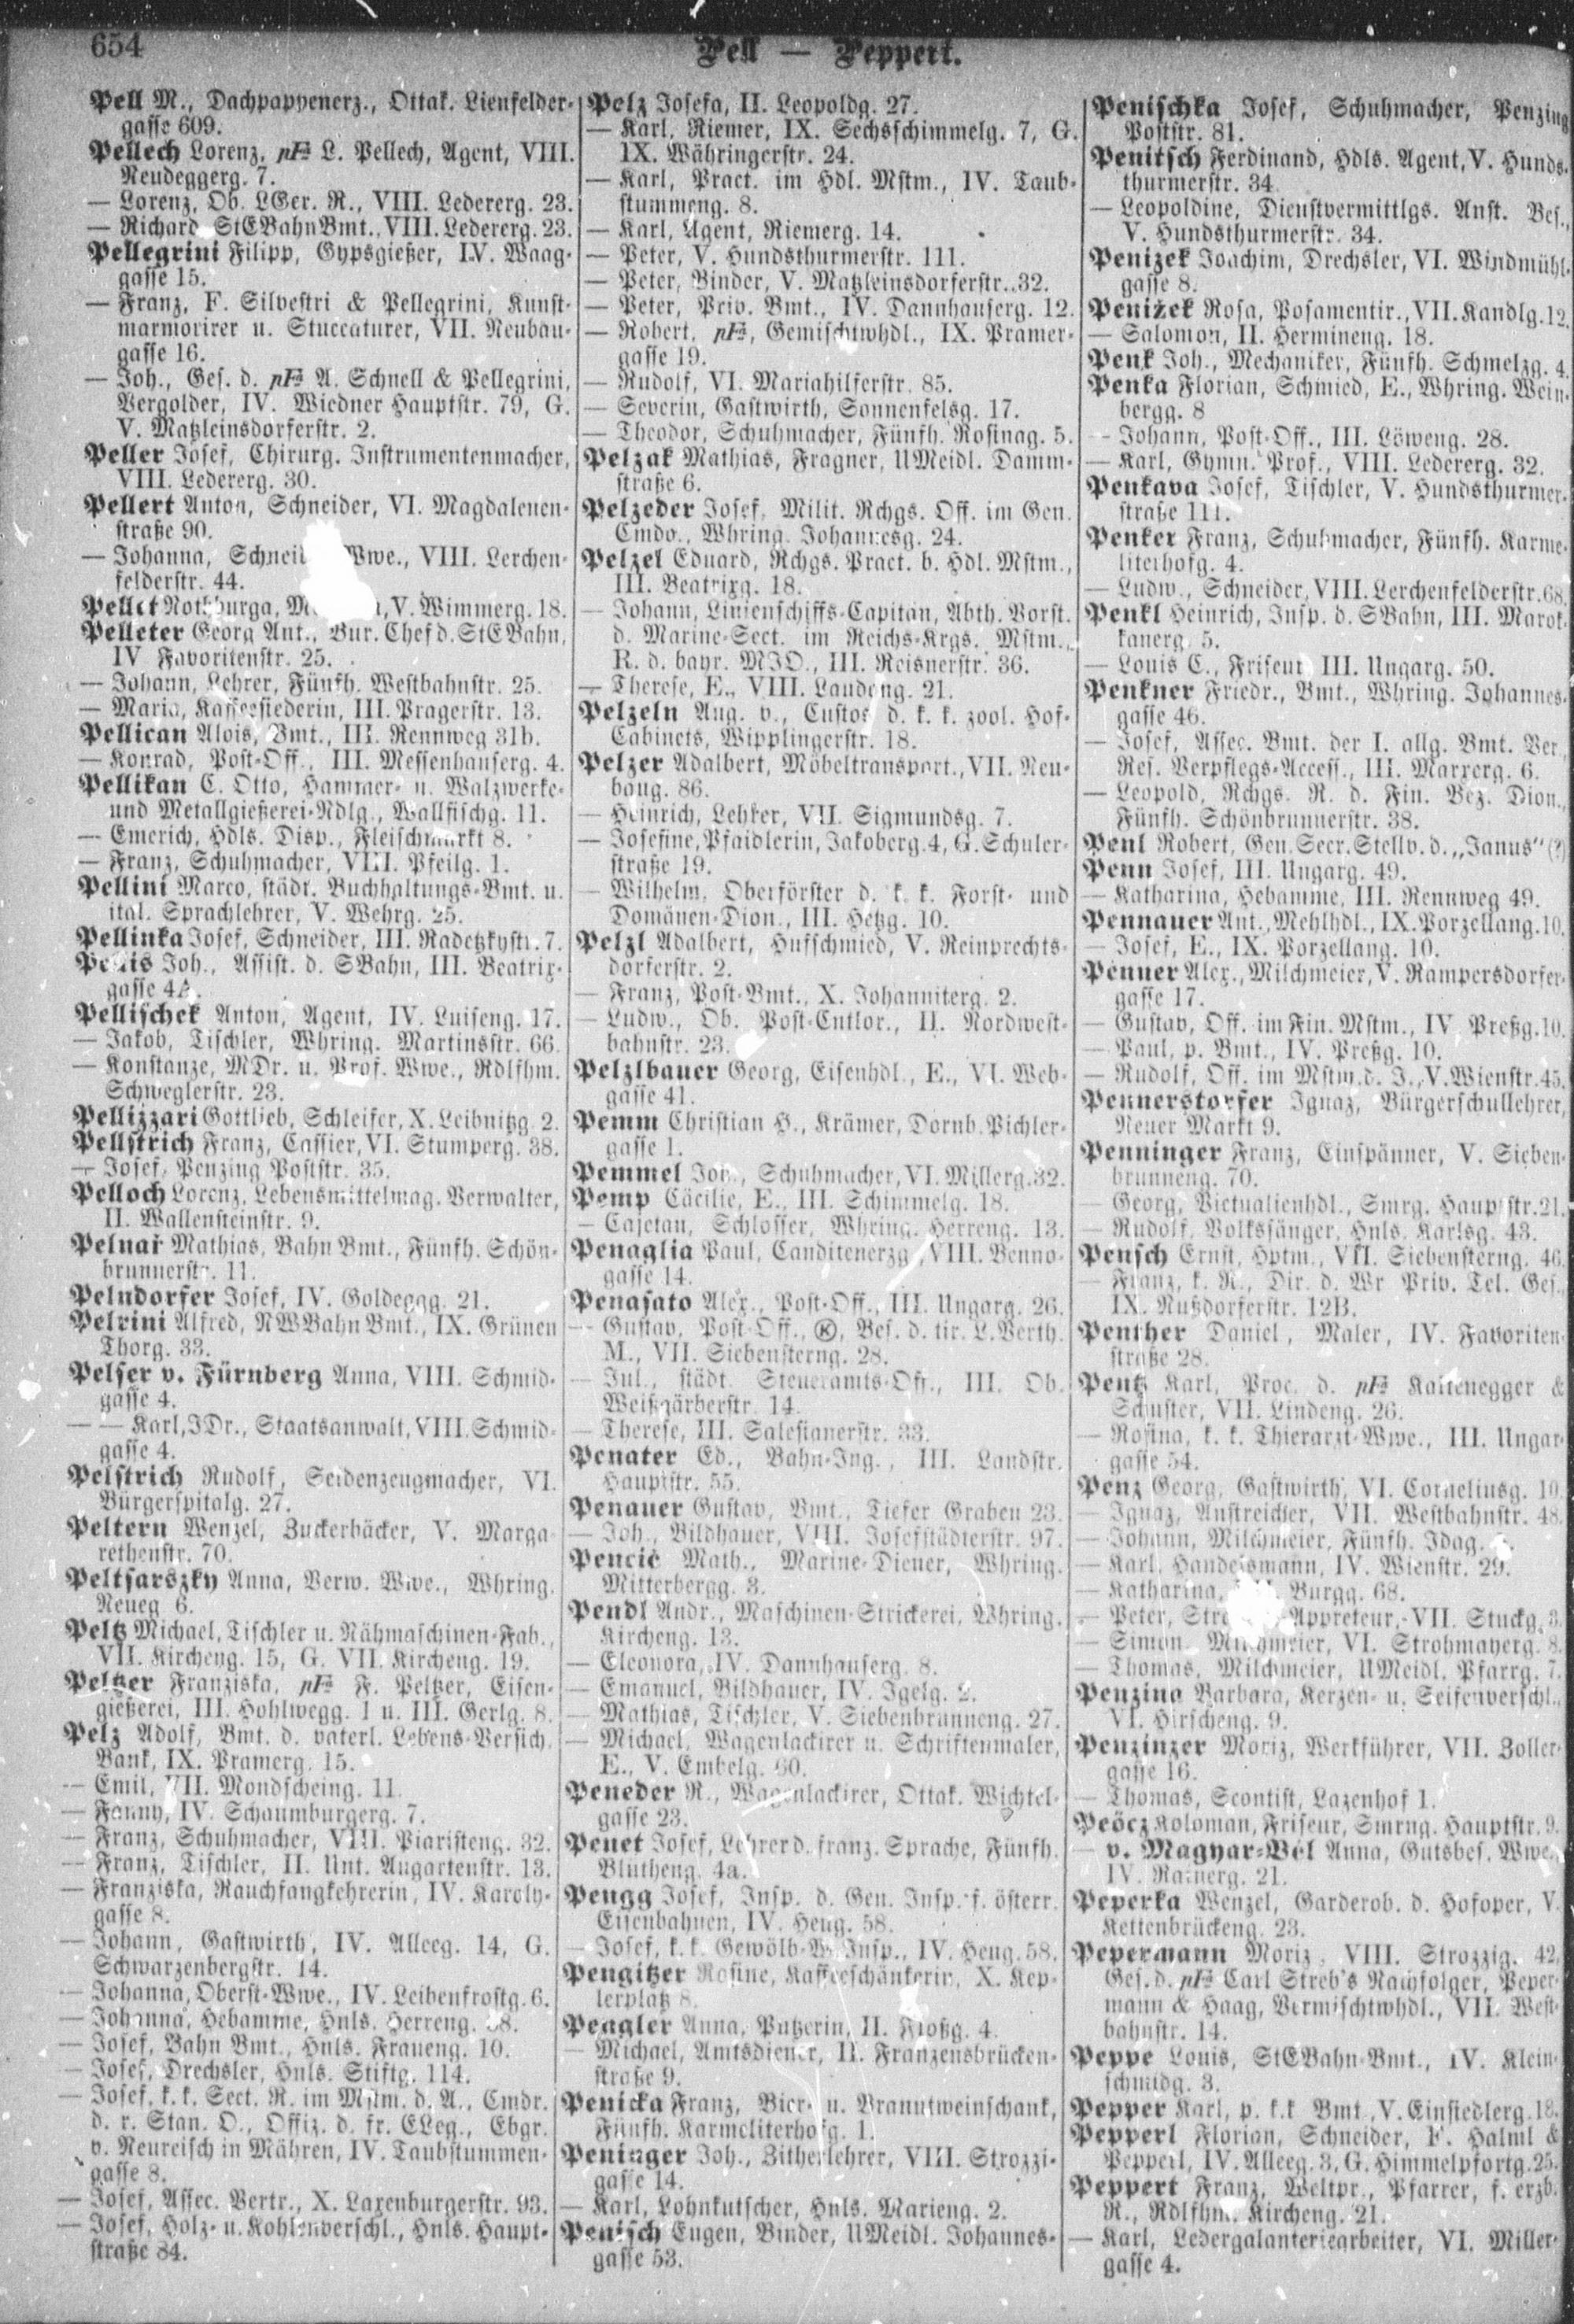 654
Pell — Peppert.
Pell M., Dachpappenerz., Ottak. Lienfelder-
gasse 609.
Pellech Lorenz, pF L. Pellech, Agent, VIII.
Neudeggerg. 7.
— Lorenz, Ob. LGer. R., VIII. Ledererg. 23.
— Richard, StEBahnBmt., VIII. Ledererg. 23.
Pellegrini Filipp, Gypsgießer, IV. Waag-
gasse 15.
— Franz, F. Silvestri & Pellegrini, Kunst-
marmorirer u. Stuccaturer, VII. Neubau-
gasse 16.
— Joh., Ges. d. pF A. Schnell & Pellegrini,
Vergolder, IV. Wiedner Hauptstr. 79, G.
V. Matzleinsdorferstr. 2.
Peller Josef, Chirurg. Instrumentenmacher,
VIII. Ledererg. 30.
Pellert Anton, Schneider, VI. Magdalenen-
straße 90.
— Johanna, Wwe., VIII. Lerchen-
felderstr. 44.
Pellet Nothburga, V. Wimmerg. 18.
Pelleter Georg Ant., Bur. Chef d. StEBahn,
IV Favoritenstr. 25.
— Johann, Lehrer, Fünfh. Westbahnstr. 25.
— Maria, Kaffeesiederin, III. Pragerstr. 13.
Pellican Alois, Bmt., III. Rennweg 31b.
— Konrad, Post-Off., III. Messenhauserg. 4.
Pellikan C. Otto, Hammer- u. Walzwerke-
und Metallgießerei-Ndlg., Wallfischg. 11.
— Emerich, Hdls. Disp., Fleischmarkt 8.
— Franz, Schuhmacher, VIII. Pfeilg. 1.
Pellini Marco, städt. Buchhaltungs-Bmt. u.
ital. Sprachlehrer, V. Wehrg. 25.
Pellinka Josef, Schneider, III. Radetzkystr. 7.
Joh., Assist. d. SBahn, III. Beatrix-
gasse 4A.
Pellischek Anton, Agent, IV. Luiseng. 17.
— Jakob, Tischler, Whring. Martinsstr. 66.
— Konstanze, MDr. u. Prof. Wwe., Rdlfhm.
Schweglerstr. 23.
Pellizzari Gottlieb, Schleifer, X. Leibnitzg. 2.
Pellstrich Franz, Cassier, VI. Stumperg. 38.
— Josef, Penzing Poststr. 35.
Pelloch Lorenz, Lebensmittelmag. Verwalter,
II. Wallensteinstr. 9.
Pelnař Mathias, Bahn Bmt., Fünfh. Schön-
brunnerstr. 11.
Pelndorfer Josef, IV. Goldeggg. 21.
Pelrini Alfred, NWBahnBmt., IX. Grünen
Thorg. 33.
Pelser v. Fürnberg Anna, VIII. Schmid-
gasse 4.
— — Karl, JDr., Staatsanwalt, VIII. Schmid-
gasse 4.
Pelstrich Rudolf, Seidenzeugmacher, VI.
Bürgerspitalg. 27.
Peltern Wenzel, Zuckerbäcker, V. Marga-
rethenstr. 70.
Peltsarszky Anna, Verw. Wwe., Whring.
Neueg 6.
Peltz Michael, Tischler u. Nähmaschinen-Fab.,
VII. Kircheng. 15, G. VII. Kircheng. 19.
Peltzer Franziska, pF F. Peltzer, Eisen-
gießerei, III. Hohlwegg. 1 u. III. Gerlg. 8.
Pelz Adolf, Bmt. d. vaterl. Lebens-Versich.
Bank, IX. Pramerg. 15.
— Emil, VII. Mondscheing. 11.
— Fanny, IV. Schaumburgerg. 7.
— Franz, Schuhmacher, VIII. Piaristeng. 32.
— Franz, Tischler, II. Unt. Augartenstr. 13.
— Franziska, Rauchfangkehrerin, IV. Karoly-
gasse 8.
— Johann, Gastwirth, IV. Alleeg. 14, G.
Schwarzenbergstr. 14.
— Johanna, Oberst-Wwe., IV. Leibenfrostg. 6.
— Johanna, Hebamme, Hnls. Herreng.
— Josef, Bahn Bmt., Hnls. Fraueng. 10.
— Josef, Drechsler, Hnls. Stiftg. 114.
— Josef, k. k. Sect. R. im Mstm. d. A., Cmdr.
d. r. Stan. O., Offiz. d. fr. ELeg., Ebgr.
v. Neureisch in Mähren, IV. Taubstummen-
gasse 8.
— Josef, Assec. Vertr., X. Laxenburgerstr. 93.
— Josef, Holz- u. Kohlenverschl., Hnls. Haupt-
straße 84.
Pelz Josefa, II. Leopoldg. 27.
— Karl, Riemer, IX. Sechsschimmelg. 7, G.
IX. Währingerstr. 24.
— Karl, Pract. im Hdl. Mstm., IV. Taub-
stummeng. 8.
— Karl, Agent, Riemerg. 14.
— Peter, V. Hundsthurmerstr. 111.
— Peter, Binder, V. Matzleinsdorferstr. 32.
— Peter, Priv. Bmt., IV. Dannhauserg. 12.
— Robert, pF, Gemischtwhdl., IX. Pramer-
gasse 19.
— Rudolf, VI. Mariahilferstr. 85.
— Severin, Gastwirth, Sonnenfelsg. 17.
— Theodor, Schuhmacher, Fünfh. Rosinag. 5.
Pelzak Mathias, Fragner, UMeidl. Damm-
straße 6.
Pelzeder Josef, Milit. Rchgs. Off. im Gen.
Cmdo., Whring. Johannesg. 24.
Pelzel Eduard, Rchgs. Pract. b. Hdl. Mstm.,
III. Beatrixg. 18.
— Johann, Linienschiffs-Capitän, Abth. Vorst.
d. Marine-Sect. im Reichs-Krgs. Mstm.,
R. d. bayr. MJO., III. Reisnerstr. 36.
— Therese, E., VIII. Laudong. 21.
Pelzeln Aug. v., Custos d. k. k. zool. Hof-
Cabinets, Wipplingerstr. 18.
Pelzer Adalbert, Möbeltransport., VII. Neu-
baug. 86.
— Heinrich, Lehrer, VII. Sigmundsg. 7.
— Josefine, Pfaidlerin, Jakoberg. 4, G. Schuler-
straße 19.
— Wilhelm, Oberförster d. k. k. Forst- und
Domänen-Dion., III. Hetzg. 10.
Pelzl Adalbert, Hufschmied, V. Reinprechts-
dorferstr. 2.
— Franz, Post-Bmt., X. Johanniterg. 2.
— Ludw., Ob. Post-Cntlor., II. Nordwest-
bahnstr. 23.
Pelzlbauer Georg, Eisenhdl., E., VI. Web-
gasse 41.
Pemm Christian H., Krämer, Dornb. Pichler-
gasse 1.
Pemmel Joh., Schuhmacher, VI. Millerg. 32.
Pemp Cäcilie, E., III. Schimmelg. 18.
— Cajetan, Schlosser, Whring. Herreng. 13.
Penaglia Paul, Canditenerzg., VIII. Benno-
gasse 14.
Penasato Alex., Post-Off., III. Ungarg. 26.
— Gustav, Post-Off., Ⓚ, Bes. d. tir. L. Verth.
M., VII. Siebensterng. 28.
— Jul., städt. Steueramts-Off., III. Ob.
Weißgärberstr. 14.
— Therese, III. Salesianerstr. 33.
Penater Ed., Bahn-Ing., III. Landstr.
Hauptstr. 55.
Penauer Gustav, Bmt., Tiefer Graben 23.
— Joh., Bildhauer, VIII. Josefstädterstr. 97.
Pencić Math., Marine-Diener, Whring.
Mitterbergg. 3.
Pendl Andr., Maschinen-Strickerei, Whring.
Kircheng. 13.
— Eleonora, IV. Dannhauserg. 8.
— Emanuel, Bildhauer, IV. Igelg. 2.
— Mathias, Tischler, V. Siebenbrunneng. 27.
— Michael, Wagenlackirer u. Schriftenmaler,
E., V. Embelg. 60.
Peneder R., Wagenlackirer, Ottak. Wichtel-
gasse 23.
Penet Josef, Lehrer d. franz. Sprache, Fünfh.
Blütheng. 4a.
Pengg Josef, Insp. d. Gen. Insp. f. österr.
Eisenbahnen, IV. Heug. 58.
— Josef, k. k. Gewölb-W. Insp., IV. Heug. 58.
Pengitzer Rosine, Kaffeeschänkerin, X. Kep-
lerplatz 8.
Pengler Anna, Putzerin, II. Floßg. 4.
— Michael, Amtsdiener, II. Franzensbrücken-
straße 9.
Penicka Franz, Bier- u. Branntweinschank,
Fünfh. Karmeliterhofg. 1.
Peninger Joh., Zitherlehrer, VIII. Strozzi-
gasse 14.
— Karl, Lohnkutscher, Hnls. Marieng. 2.
Penisch Eugen, Binder, UMeidl. Johannes-
gasse 53.
Penischka Josef, Schuhmacher, Penzing
Poststr. 81.
Penitsch Ferdinand, Hdls. Agent, V. Hunds-
thurmerstr. 34.
— Leopoldine, Dienstvermittlgs. Anst. Bes.,
V. Hundsthurmerstr. 34.
Penizek Joachim, Drechsler, VI. Windmühl-
gasse 8.
Penižek Rosa, Posamentir., VII. Kandlg. 12.
— Salomon, II. Hermineng. 18.
Penk Joh., Mechaniker, Fünfh. Schmelzg. 4.
Penka Florian, Schmied, E., Whring. Wein-
bergg. 8
— Johann, Post-Off., III. Löweng. 28.
— Karl, Gymn. Prof., VIII. Ledererg. 32.
Penkava Josef, Tischler, V. Hundsthurmer-
straße 111.
Penker Franz, Schuhmacher, Fünfh. Karme-
literhofg. 4.
— Ludw., Schneider, VIII. Lerchenfelderstr. 68.
Penkl Heinrich, Insp. d. SBahn, III. Marok-
kanerg. 5.
— Louis C., Friseur III. Ungarg. 50.
Penkner Friedr., Bmt., Whring. Johannes-
gasse 46.
— Josef, Assec. Bmt. der I. allg. Bmt. Ver.,
Res. Verpflegs-Access., III. Marxerg. 6.
— Leopold, Rchgs. R. d. Fin. Bez. Dion.,
Fünfh. Schönbrunnerstr. 38.
Penl Robert, Gen. Secr. Stellv. d. „Janus“ (?)
Penn Josef, III. Ungarg. 49.
— Katharina, Hebamme, III. Rennweg 49.
Pennauer Ant., Mehlhdl., IX. Porzellang. 10.
— Josef, E., IX. Porzellang. 10.
Penner Alex., Milchmeier, V. Rampersdorfer-
gasse 17.
— Gustav, Off. im Fin. Mstm., IV. Preßg. 10.
— Paul, p. Bmt., IV. Preßg. 10.
— Rudolf, Off. im Mstm. d. J., V. Wienstr. 45.
Pennerstorfer Ignaz, Bürgerschullehrer,
Neuer Markt 9.
Penninger Franz, Einspänner, V. Sieben-
brunneng. 70.
— Georg, Victualienhdl., Smrg. Hauptstr. 21.
— Rudolf, Volkssänger, Hnls. Karlsg. 43.
Pensch Ernst, Hptm., VII. Siebensterng. 46.
— Franz, k. R., Dir. d. Wr Priv. Tel. Ges.,
IX. Nußdorferstr. 12B.
Penther Daniel, Maler, IV. Favoriten-
straße 28.
Pentz Karl, Proc. d. pF Kaltenegger &
Schuster, VII. Lindeng. 26.
— Rosina, k. k. Thierarzt-Wwe., III. Ungar-
gasse 54.
Penz Georg, Gastwirth, VI. Corneliusg. 10.
— Ignaz, Anstreicher, VII. Westbahnstr. 48.
— Johann, Milchmeier, Fünfh. Idag.
— Karl, Handelsmann, IV. Wienstr. 29.
— Katharina, Burgg. 68.
— Peter, Appreteur, VII. Stuckg. 3.
— Simon, Milchmeier, VI. Strohmayerg. 8.
— Thomas, Milchmeier, UMeidl. Pfarrg. 7.
Penzina Barbara, Kerzen- u. Seifenverschl.,
VI. Hirscheng. 9.
Penzinzer Moriz, Werkführer, VII. Zoller-
gasse 16.
— Thomas, Scontist, Lazenhof 1.
Peöcz Koloman, Friseur, Smrng. Hauptstr. 9.
— v. Magyar-Bél Anna, Gutsbes. Wwe.,
IV. Rainerg. 21.
Peperka Wenzel, Garderob. d. Hofoper, V.
Kettenbrückeng. 23.
Pepermann Moriz, VIII. Strozzig. 42,
Ges. d. pF Carl Streb's Nachfolger, Peper-
mann & Haag, Vermischtwhdl., VII. West-
bahnstr. 14.
Peppe Louis, StEBahn-Bmt., IV. Klein-
schmidg. 3.
Pepper Karl, p. k.k Bmt., V. Einsiedlerg. 18.
Pepperl Florian, Schneider, F. Halml &
Pepperl, IV. Alleeg. 3, G. Himmelpfortg. 25.
Peppert Franz, Weltpr., Pfarrer, f. erzb.
R., Rdlfhm. Kircheng. 21.
— Karl, Ledergalanteriearbeiter, VI. Miller-
gasse 4.